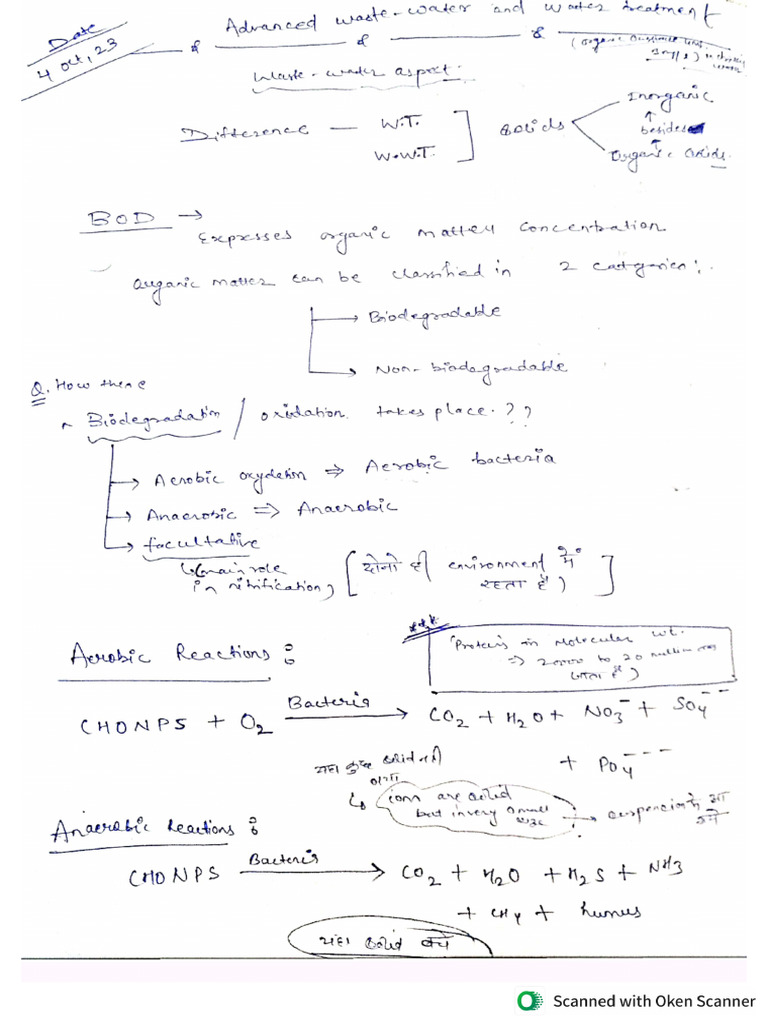 Date
4 Oct, 23
Advanced waste-water and water treatment
& & &
Waste-water aspect.
Difference — W.T.
W.W.T. ] Solids
Inorganic
↑
besides
↑
Organic solids.
BOD →
Expresses organic matter concentration
organic matter can be classified in 2 categories:
→ Biodegradable
→ Non-biodegradable
Q. How the
Biodegradation / oxidation takes place. ??
→ Aerobic oxydation ⇒ Aerobic bacteria
→ Anaerobic ⇒ Anaerobic
→ facultative
(main role
in nitrification)
[ दोनो ही environment में
रहता है) ]
***
(Proteins in Molecular wt.
⇒ 20000 to 20 million तक
जाता है)
Aerobic Reactions :
CHONPS + O2 Bacteria → CO2 + H2O + NO3- + SO4--
+ PO4---
यहा कुछ solid नही
बना
ions are solid
but in very small
size
→ suspension में आ
Anaerobic Reactions :
CHONPS Bacteria → CO2 + H2O + H2S + NH3
+ CH4 + humus
यहा solid बचे
Scanned with Oken Scanner